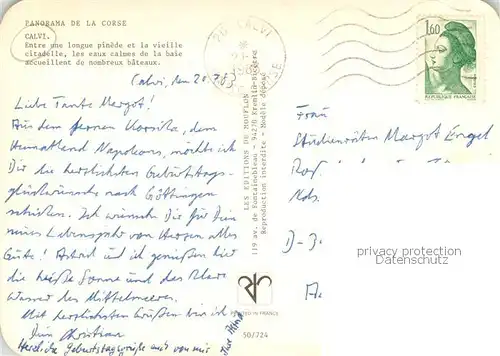 PANORAMA DE LA CORSE
CALVI.
Entre une longue pinède et la vieille
citadelle, les eaux calmes de la baie
accueillent de nombreux bâteaux.
Calvi, den
Liebe Tante Margot!
Aus dem fernen Korsika, dem
Heimatland Napoleons, möchte ich
Dir die herzlichsten Geburtstags-
glückwünsche nach Göttingen
schicken. Ich wünsche Dir für Dein
neues Lebensjahr von Herzen alles
Gute! Astrid und ich genießen hier
die heiße Sonne und das
Wasser des Mittelmeeres.
Mit herzlichsten Grüßen bin ich
Dein Christian
Herzliche Geburtstagsgrüße auch von mir
LES EDITIONS DU MOUFLON
119 av. de Fontainebleau - 94270 Kremlin-Bicêtre
Reproduction interdite - Modèle déposé
PRINTED IN FRANCE
50/724
20 CALVI
1,60
REPUBLIQUE FRANÇAISE
Frau
Studienrätin Margot Engel
D-3
privacy protection
Datenschutz